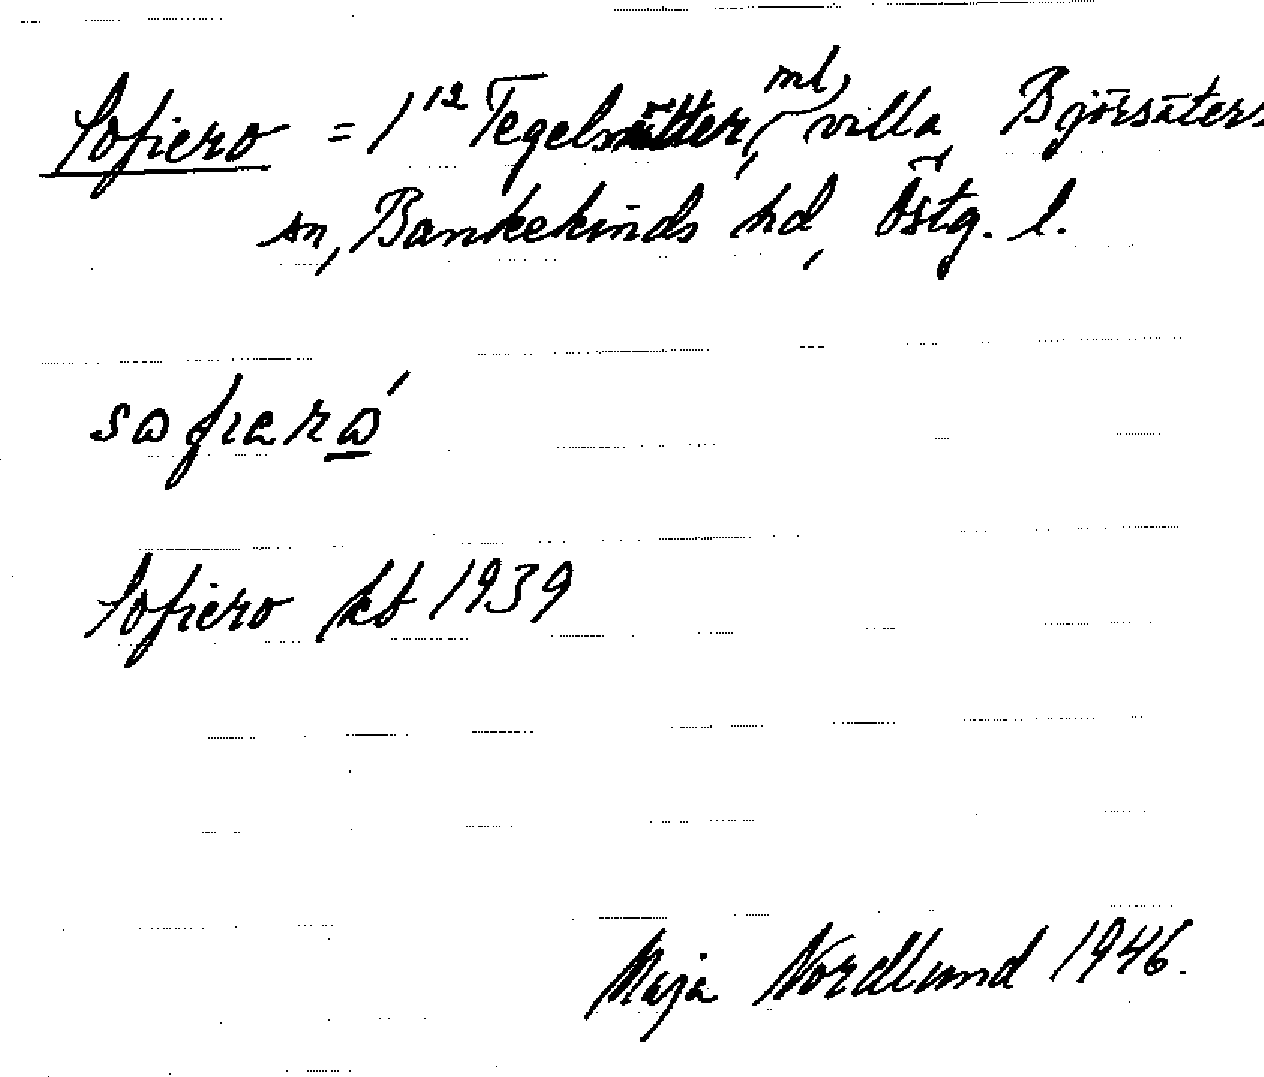 Sofiero = 1¹² Tegelsätter, ml, villa, Björsäters
sn, Bankekinds hd, Östg. l.
Sofiero kb 1939
Maja Nordlund 1946.